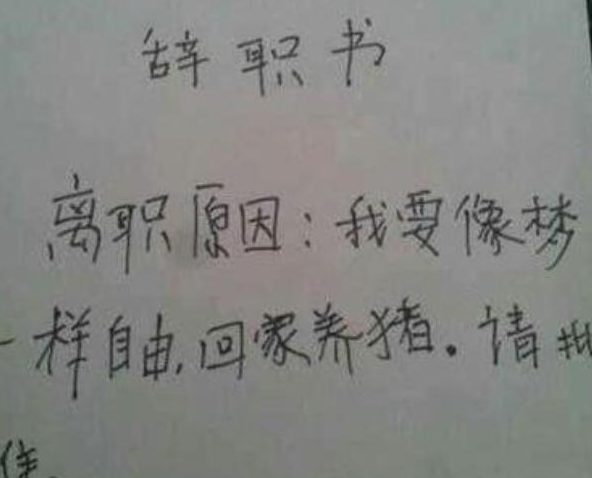 辞职书
离职原因：我要像梦
一样自由,回家养猪。请批
准。